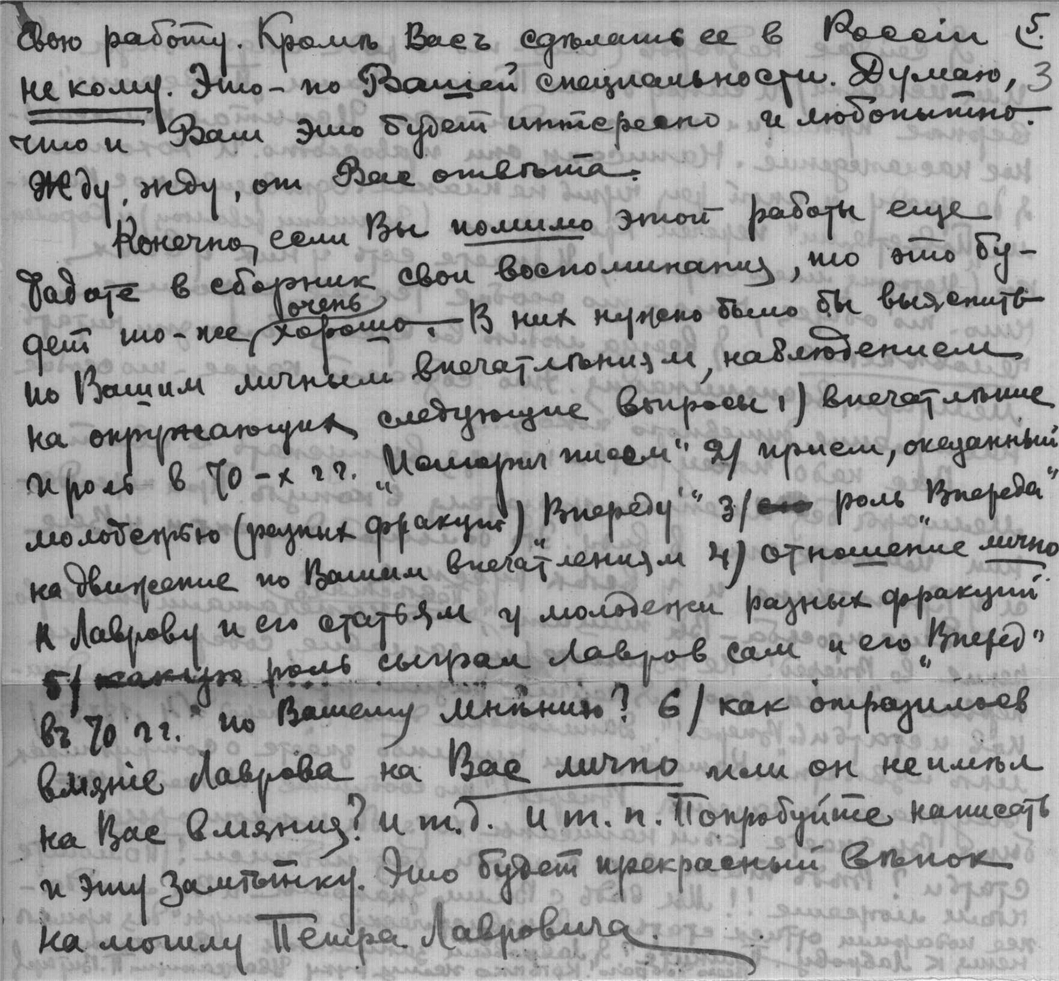 свою работу. Кромѣ Васъ сдѣлать ее в Россіи 5.
некому. Это - по Вашей специальности. Думаю, 3
что и Вам это будет интересно и любопытно.
Жду, жду, от Вас отвѣта.
Конечно, если Вы помимо этой работы еще
дадите в сборник свои воспоминания, то это бу-
дет то-же очень хорошо. В них нужно было бы выяснить
по Вашим личным впечатлѣниям, наблюдением
на окружающих следующие вопросы 1) впечатлѣние
и роль в 70-х гг. „Историч писем" 2) прием, оказанный
молодежью (разних фракций) „Впереду" 3) роль „Впереда"
на движение по Вашим впечатлениям 4) отношение лично
к Лаврову и его статьям у молодежи разных фракций
5) какую роль сыграл Лавров сам и его „Вперед"
въ 70 гг. по Вашему мнѣнию? 6) как отразилось
вліяніе Лаврова на Вас лично или он не имѣл
на Вас влияния? и т.д. и т.п. Попробуйте написать
и эту замѣтку. Это будет прекрасный вѣнок
на могилу Петра Лавровича.